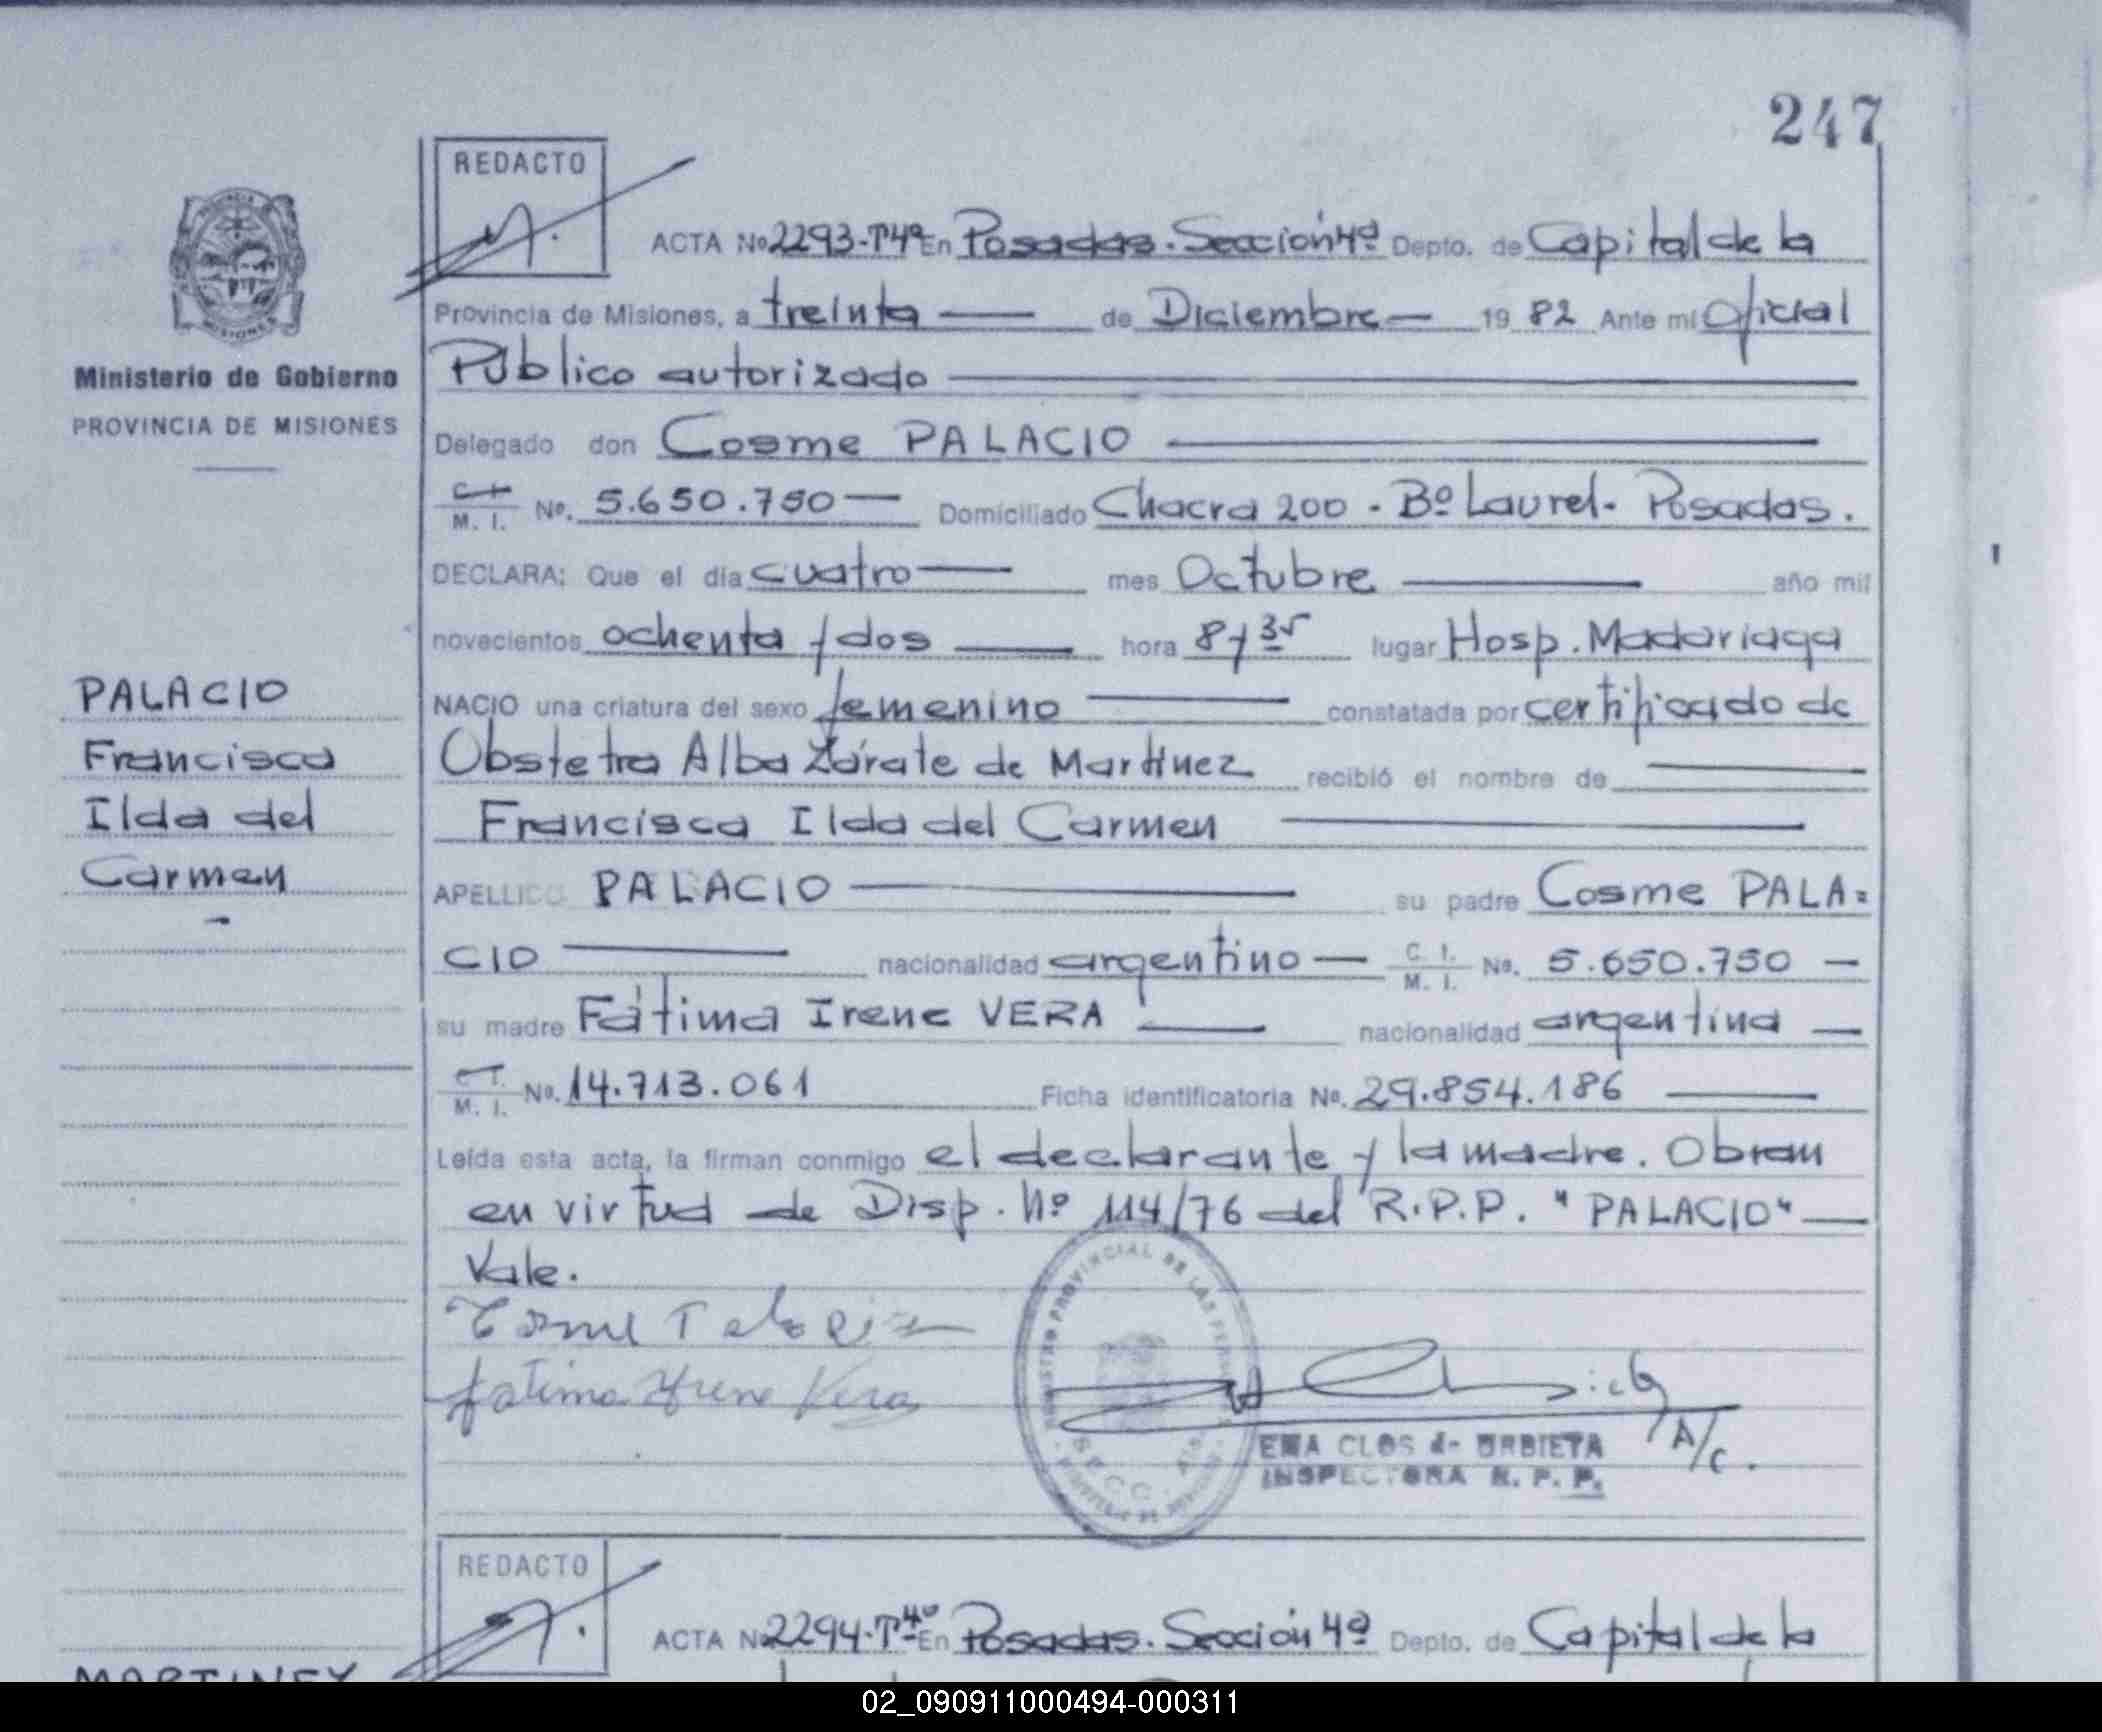 247
REDACTO
ACTA No 2293-Tº4º En Posadas. Sección 4ª Depto. de Capital de la
Provincia de Misiones, a treinta — de Diciembre — 19 82 Ante mí Oficial
Público autorizado
Delegado don Cosme PALACIO
C. I. M. I. No. 5.650.750 — Domiciliado Chacra 200 - Bº Laurel - Posadas.
DECLARA: Que el día cuatro — mes Octubre — año mil
novecientos ochenta y dos — hora 8 y 35 lugar Hosp. Madariaga
NACIO una criatura del sexo femenino — constatada por certificado de
Obstetra Alba Zárate de Martínez recibió el nombre de —
Francisca Ilda del Carmen —
APELLIDO PALACIO — su padre Cosme PALA=
CIO — nacionalidad argentino — C. I. M. I. No. 5.650.750 —
su madre Fátima Irene VERA — nacionalidad argentina —
C. I. M. I. No. 14.713.061 Ficha identificatoria No. 29.854.186 —
Leída esta acta, la firman conmigo el declarante y la madre. Obran
en virtud de Disp. Nº 114/76 del R.P.P. "PALACIO" —
Vale.
Fatima Yrene Vera
REGISTRO PROVINCIAL DE LAS PERSONAS
SECC.
A/c.
EMA CLOS de URBIETA
INSPECTORA R. P. P.
Ministerio de Gobierno
PROVINCIA DE MISIONES
PALACIO
Francisca
Ilda del
Carmen
REDACTO
ACTA No 2294-Tº4º En Posadas. Sección 4ª Depto. de Capital de la
MARTINEZ
02_090911000494-000311